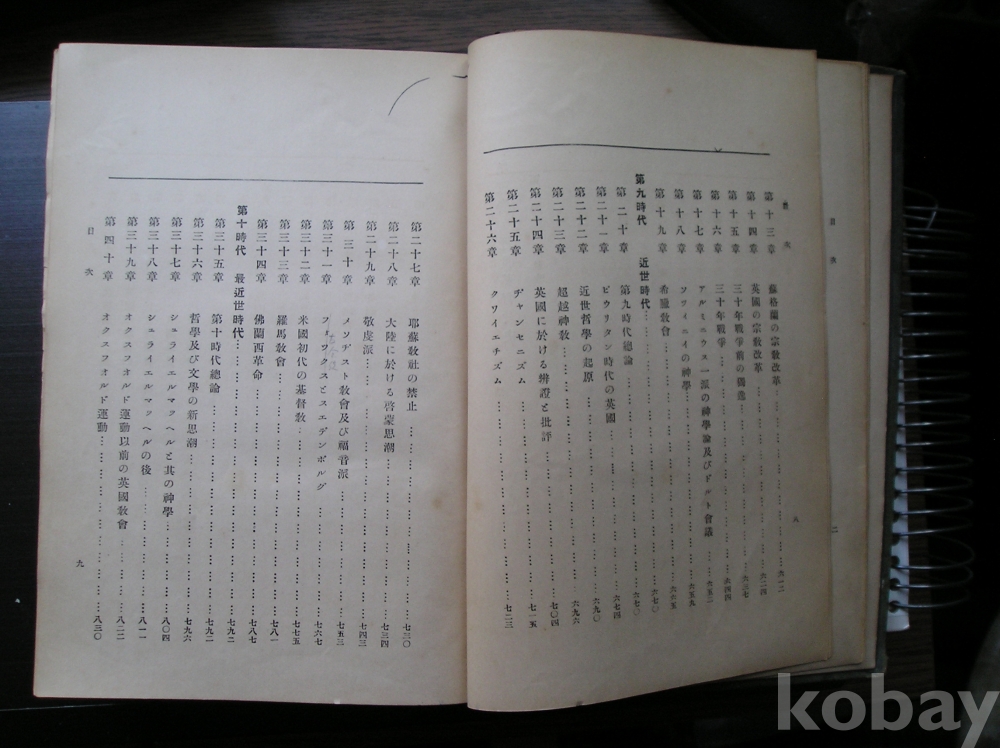 目次
二
目次
第十三章 蘇格蘭の宗教改革……六一二
第十四章 英國の宗教改革……六二四
第十五章 三十年戰爭前の獨逸……六三七
第十六章 三十年戰爭……六四四
第十七章 アルミニウス一派の神學論及びドルト會議……六五二
第十八章 ソツィニイの神學……六五九
第十九章 希臘敎會……六六五
第九時代 近世時代……六七〇
第二十章 第九時代總論……六七〇
第二十一章 ピウリタン時代の英國……六七四
第二十二章 近世哲學の起原……六九〇
第二十三章 超越神敎……六九六
第二十四章 英國に於ける辨證と批評……七〇四
第二十五章 ヂャンセニズム……七一五
第二十六章 クワイエチズム……七二三
八
第二十七章 耶蘇敎社の禁止……七三〇
第二十八章 大陸に於ける啓蒙思潮……七三四
第二十九章 敬虔派……七四三
第三十章 メソヂスト敎會及び福音派……七五三
第三十一章 フォックスとスエデンボルグ……七六七
第三十二章 米國初代の基督敎……七七五
第三十三章 羅馬敎會……七八一
第三十四章 佛蘭西革命……七八七
第十時代 最近世時代……七九二
第三十五章 第十時代總論……七九二
第三十六章 哲學及び文學の新思潮……七九六
第三十七章 シュライエルマッヘルと其の神學……八〇四
第三十八章 シュライエルマッヘルの後……八一一
第三十九章 オクスフオルド運動以前の英國敎會……八二二
第四十章 オクスフオルド運動……八三〇
目次
九
kobay